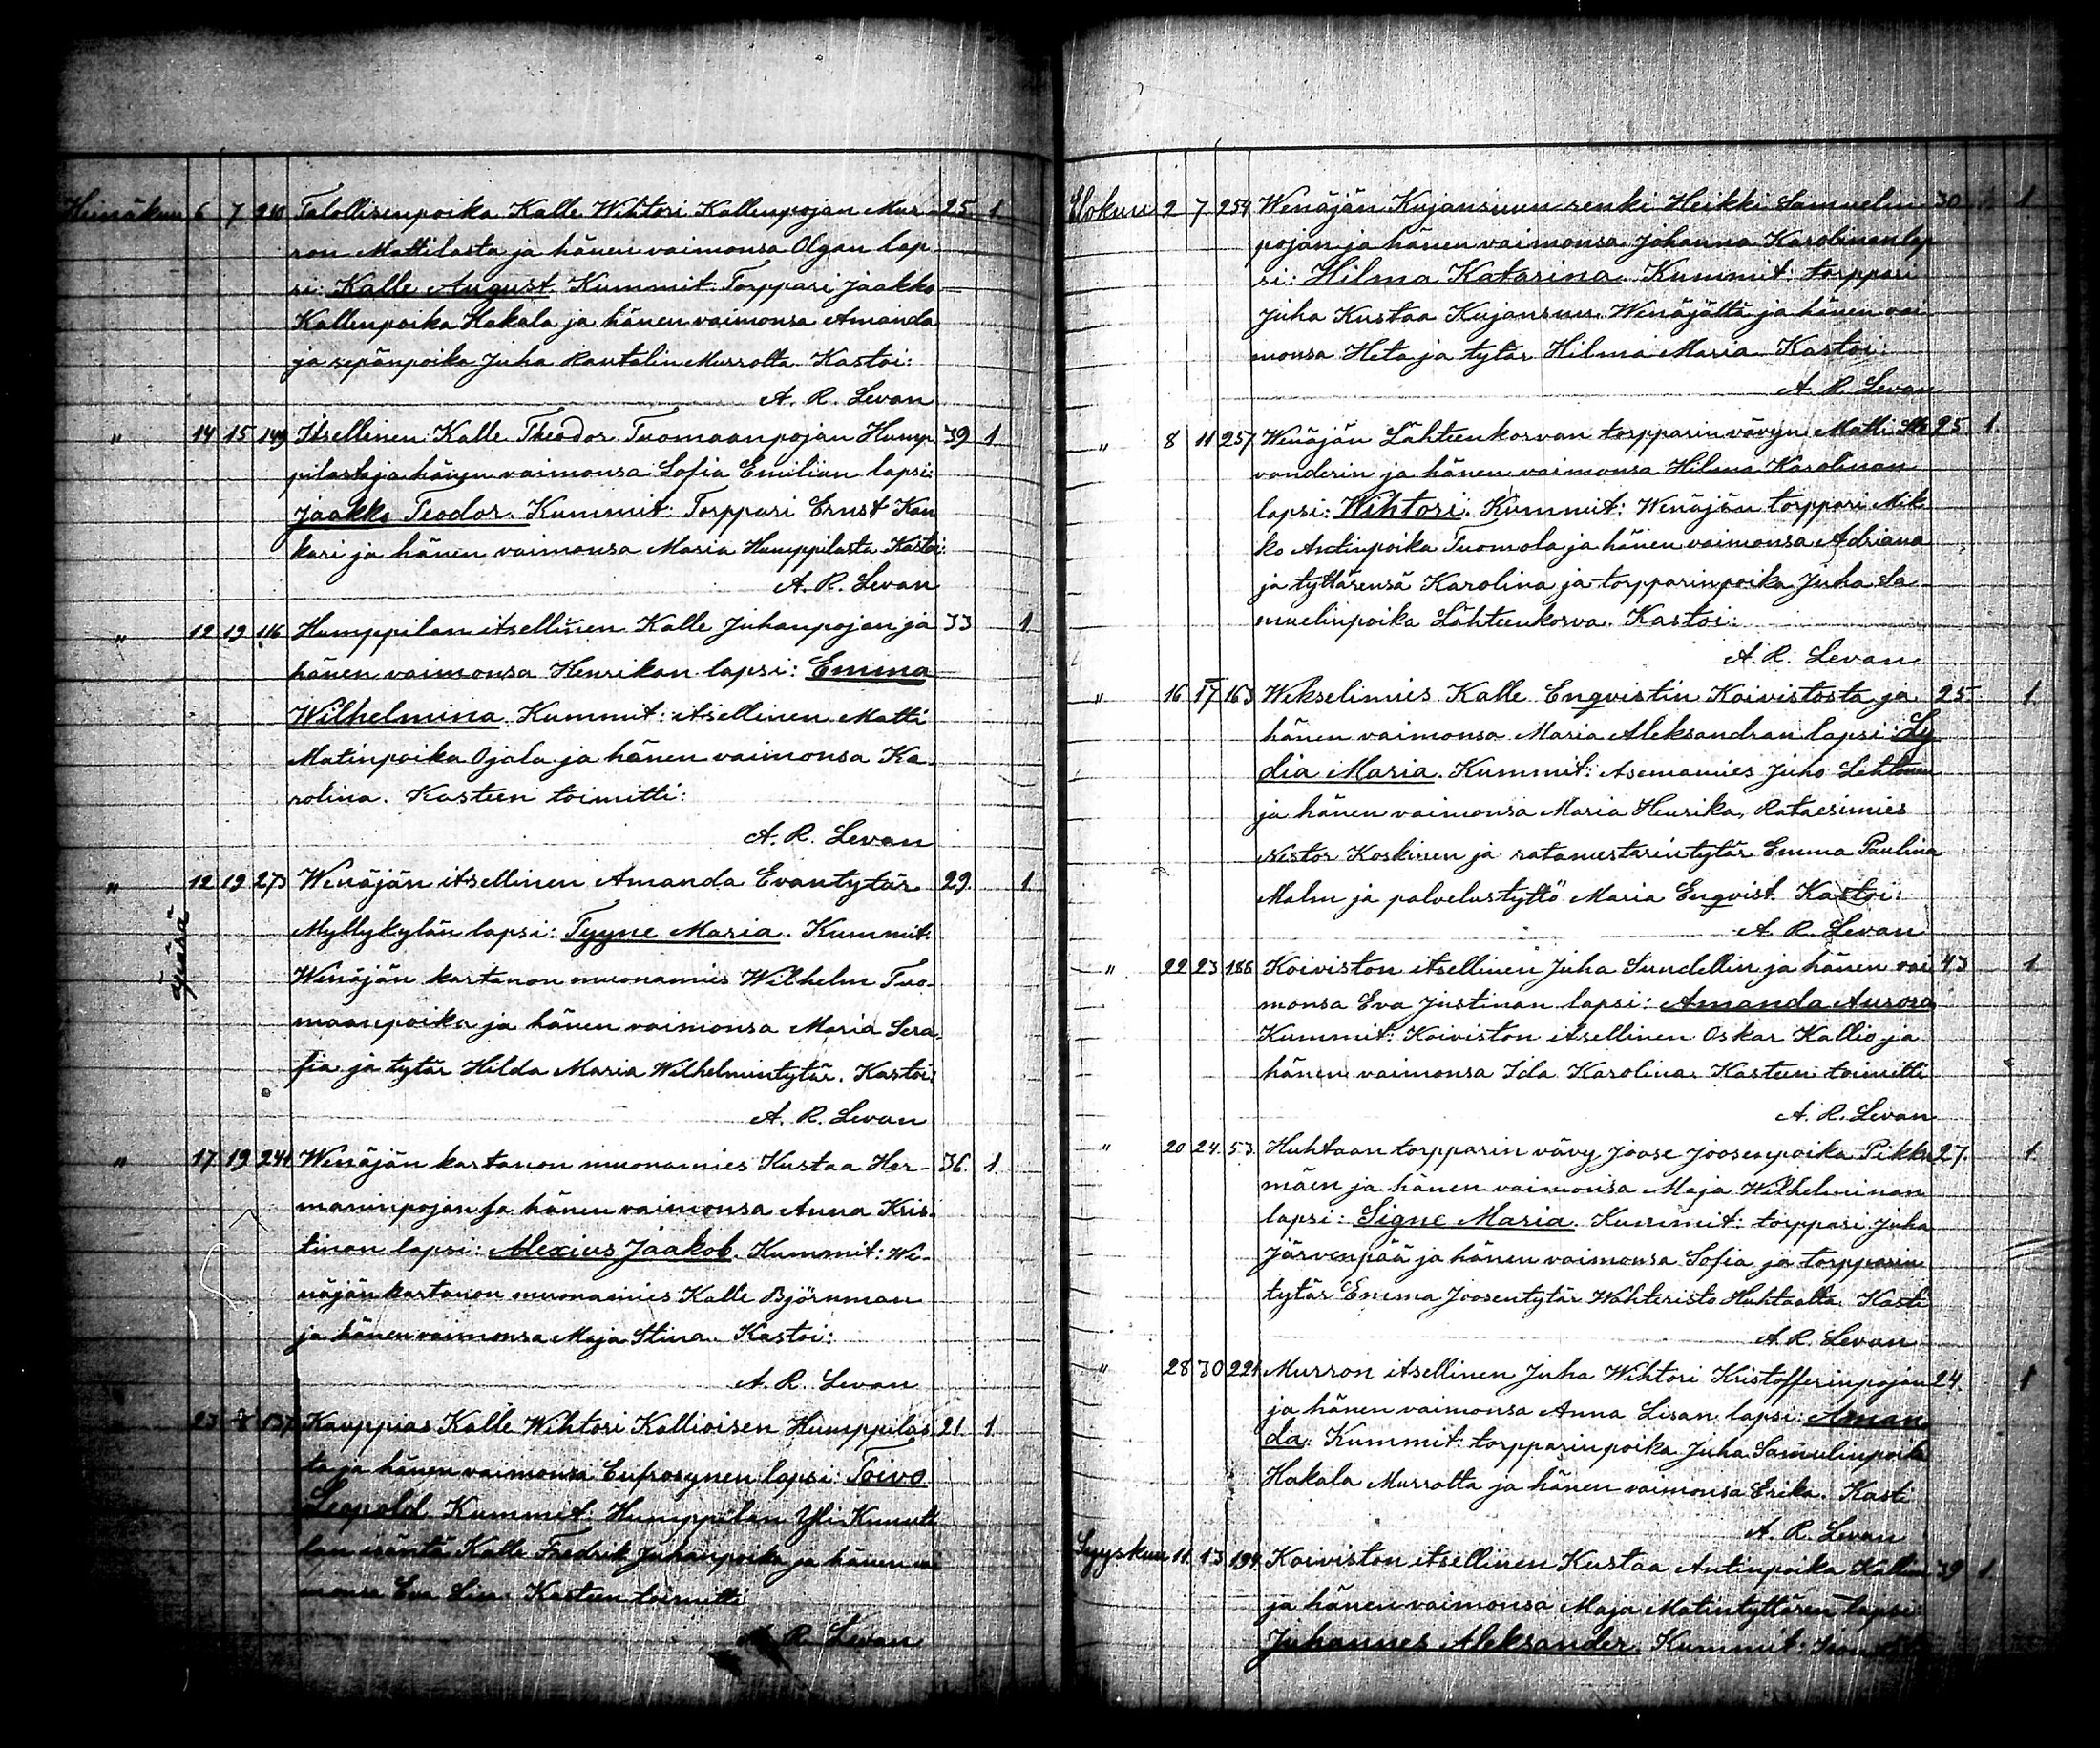 Heinäkuu 6 7 240 Talollisenpoika Kalle Wihtori Kallenpojan Mur- 25 1
ron Mattilasta ja hänen vaimonsa Olgan lap
si: Kalle August. Kummit: Torppari Jaakko
Kallenpoika Hakala ja hänen vaimonsa Amanda
ja sepänpoika Juha Rautalin Murrolta. Kastoi:
A. R. Levan
" 14 15 149 Itsellinen Kalle Theodor Tuomaanpojan Hump 39 1
pilasta ja hänen vaimonsa Sofia Emilian lapsi:
Jaakko Teodor. Kummit: Torppari Ernst Kan
kari ja hänen vaimonsa Maria Humppilasta. Kastoi:
A. R. Levan
" 12 19 116 Humppilan itsellinen Kalle Juhanpojan ja 33 1
hänen vaimonsa Henrikan lapsi: Emma
Wilhelmina. Kummit: itsellinen Matti
Matinpoika Ojala ja hänen vaimonsa Ka
rolina. Kasteen toimitti:
A. R. Levan
" 12 19 273 Wenäjän itsellinen Amanda Evantytär 29. 1
Myllykylän lapsi: Tyyne Maria. Kummit:
Wenäjän kartanon muonamies Wilhelm Tuo-
maanpoika ja hänen vaimonsa Maria Sera
fia ja tytär Hilda Maria Wilhelmintytär. Kastoi:
A. R. Levan
" 17 19 241 Wenäjän kartanon muonamies Kustaa Her- 36. 1.
maninpojan ja hänen vaimonsa Anna Kris-
tinan lapsi: Alexius Jaakob. Kummit: We-
näjän kartanon muonamies Kalle Björnman
ja hänen vaimonsa Maja Stina. Kastoi:
A. R. Levan
23 Kauppias Kalle Wihtori Kallioisen Humppilas 21. 1.
ta ja hänen vaimonsa Eufrosynen lapsi: Toivo
Leopold. Kummit: Humppilan Yli Knuuti
lan isäntä Kalle Fredrik Juhanpoika ja hänen vai
monsa Eva Lisa. Kasteen toimitti
A. R. Levan
Elokuu 2 7 254 Wenäjän Kujansuun renki Heikki Samuelin 30 1
pojan ja hänen vaimonsa Johanna Karolinan lap
si: Hilma Katarina. Kummit: torppari
Juha Kustaa Kujansuu Wenäjältä ja hänen vai
monsa Heta ja tytär Hilma Maria. Kastoi:
A. R. Levan
" 8 11 257 Wenäjän Lähteenkorvan torpparin vävyn Matti 25 1.
vanderin ja hänen vaimonsa Hilma Karolinan
lapsi: Wihtori. Kummit: Wenäjän torppari Mik
ko Antinpoika Tuomola ja hänen vaimonsa Adriana
ja tyttärensä Karolina ja torpparinpoika Juha Sa
muelinpoika Lähteenkorva. Kastoi:
A. R. Levan
" 16 17 163 Wekselimies Kalle Engvistin Koivistosta ja 25. 1.
hänen vaimonsa Maria Aleksandran lapsi: Ly
dia Maria. Kummit: Asemamies Juho Lehtonen
ja hänen vaimonsa Maria Henrika, Rataesimies
Nestor Koskinen ja ratamestarintytär Emma Paulina
Malm ja palvelustyttö Maria Engvist. Kastoi:
A. R. Levan
" 22 23 188 Koiviston itsellinen Juha Sundellin ja hänen vai 43 1
monsa Eva Justinan lapsi: Amanda Aurora
Kummit: Koiviston itsellinen Oskar Kallio ja
hänen vaimonsa Ida Karolina. Kasteen toimitti
A. R. Levan
" 20 24. 53. Huhtaan torpparin vävy Joose Joosenpoika Pikku 27. 1.
mäen ja hänen vaimonsa Maja Wilhelminan
lapsi: Signe Maria. Kummit: torppari Juha
Järvenpää ja hänen vaimonsa Sofia ja torpparin
tytär Emma Joosentytär Wahteristo Huhtaalta. Kasti
A. R. Levan
" 28 30 221 Murron itsellinen Juha Wihtori Kristofferinpojan 24. 1
ja hänen vaimonsa Anna Lisan lapsi: Aman
da. Kummit: torpparinpoika Juha Samulinpoika
Hakala Murrolta ja hänen vaimonsa Erika. Kasti
A. R. Levan
Syyskuu 11. 13 194 Koiviston itsellinen Kustaa Antinpoika Kallion 39 1.
ja hänen vaimonsa Maja Matintyttären lapsi:
Juhannes Aleksander. Kummit: